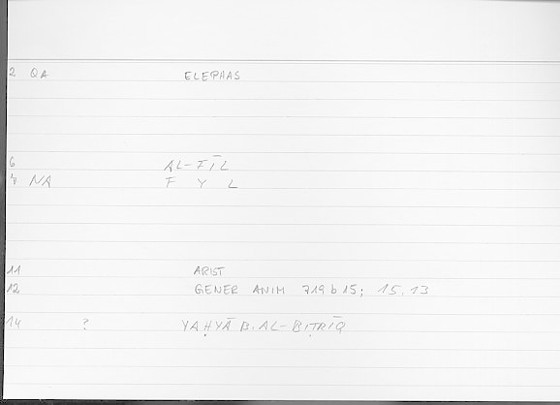 2 QA ELEPHAS
6 AL-FĪL
7 NA F Y L
11 ARIST
12 GENER ANIM 719 b 15; 15.13
14 ? YAḤYĀ B. AL-BIṬRĪQ